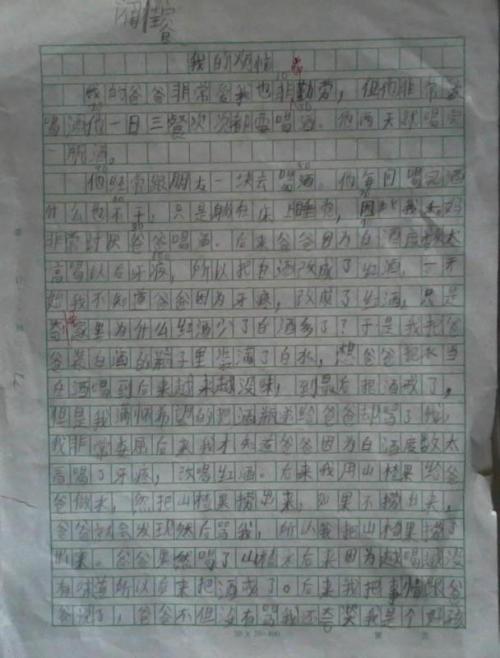 我的烦恼
我的爸爸非常爸我也非勤劳，但他非常爱
喝酒他一日三餐次次都要喝酒。他两天就喝完
一瓶酒。
他经常跟朋友一块去喝酒。他每日喝完酒
什么也不干，只是躺在床上睡觉，因此我
非常讨厌爸爸喝酒。后来爸爸因为白酒度数太
高喝以后牙疼，所以把白酒改成了红酒，一开
始我不知道爸爸因为牙疼，改成了红酒，只是
家里为什么红酒少了白酒多了？于是我把爸
爸装白酒的瓶子里装满了白水，想爸爸把水当
白酒喝到后来越来越没味，到最后把酒戒了，
但是我满怀希望的把酒瓶递给爸爸却骂了我，
我非常委屈后来我才知道爸爸因为白酒度数太
高喝了牙疼，改喝红酒。后来我用山楂果给爸
爸做水，然把山楂果捞出来，如果不捞出来，
爸爸就会发现然后骂我，所以我把山楂果捞了
出来。爸爸果然喝了山楂水后来因为越喝越没
有味道所以后来把酒戒了。后来我把事情跟爸
爸说了，爸爸不但没有骂我还夸奖我是个好孩
20×20=400